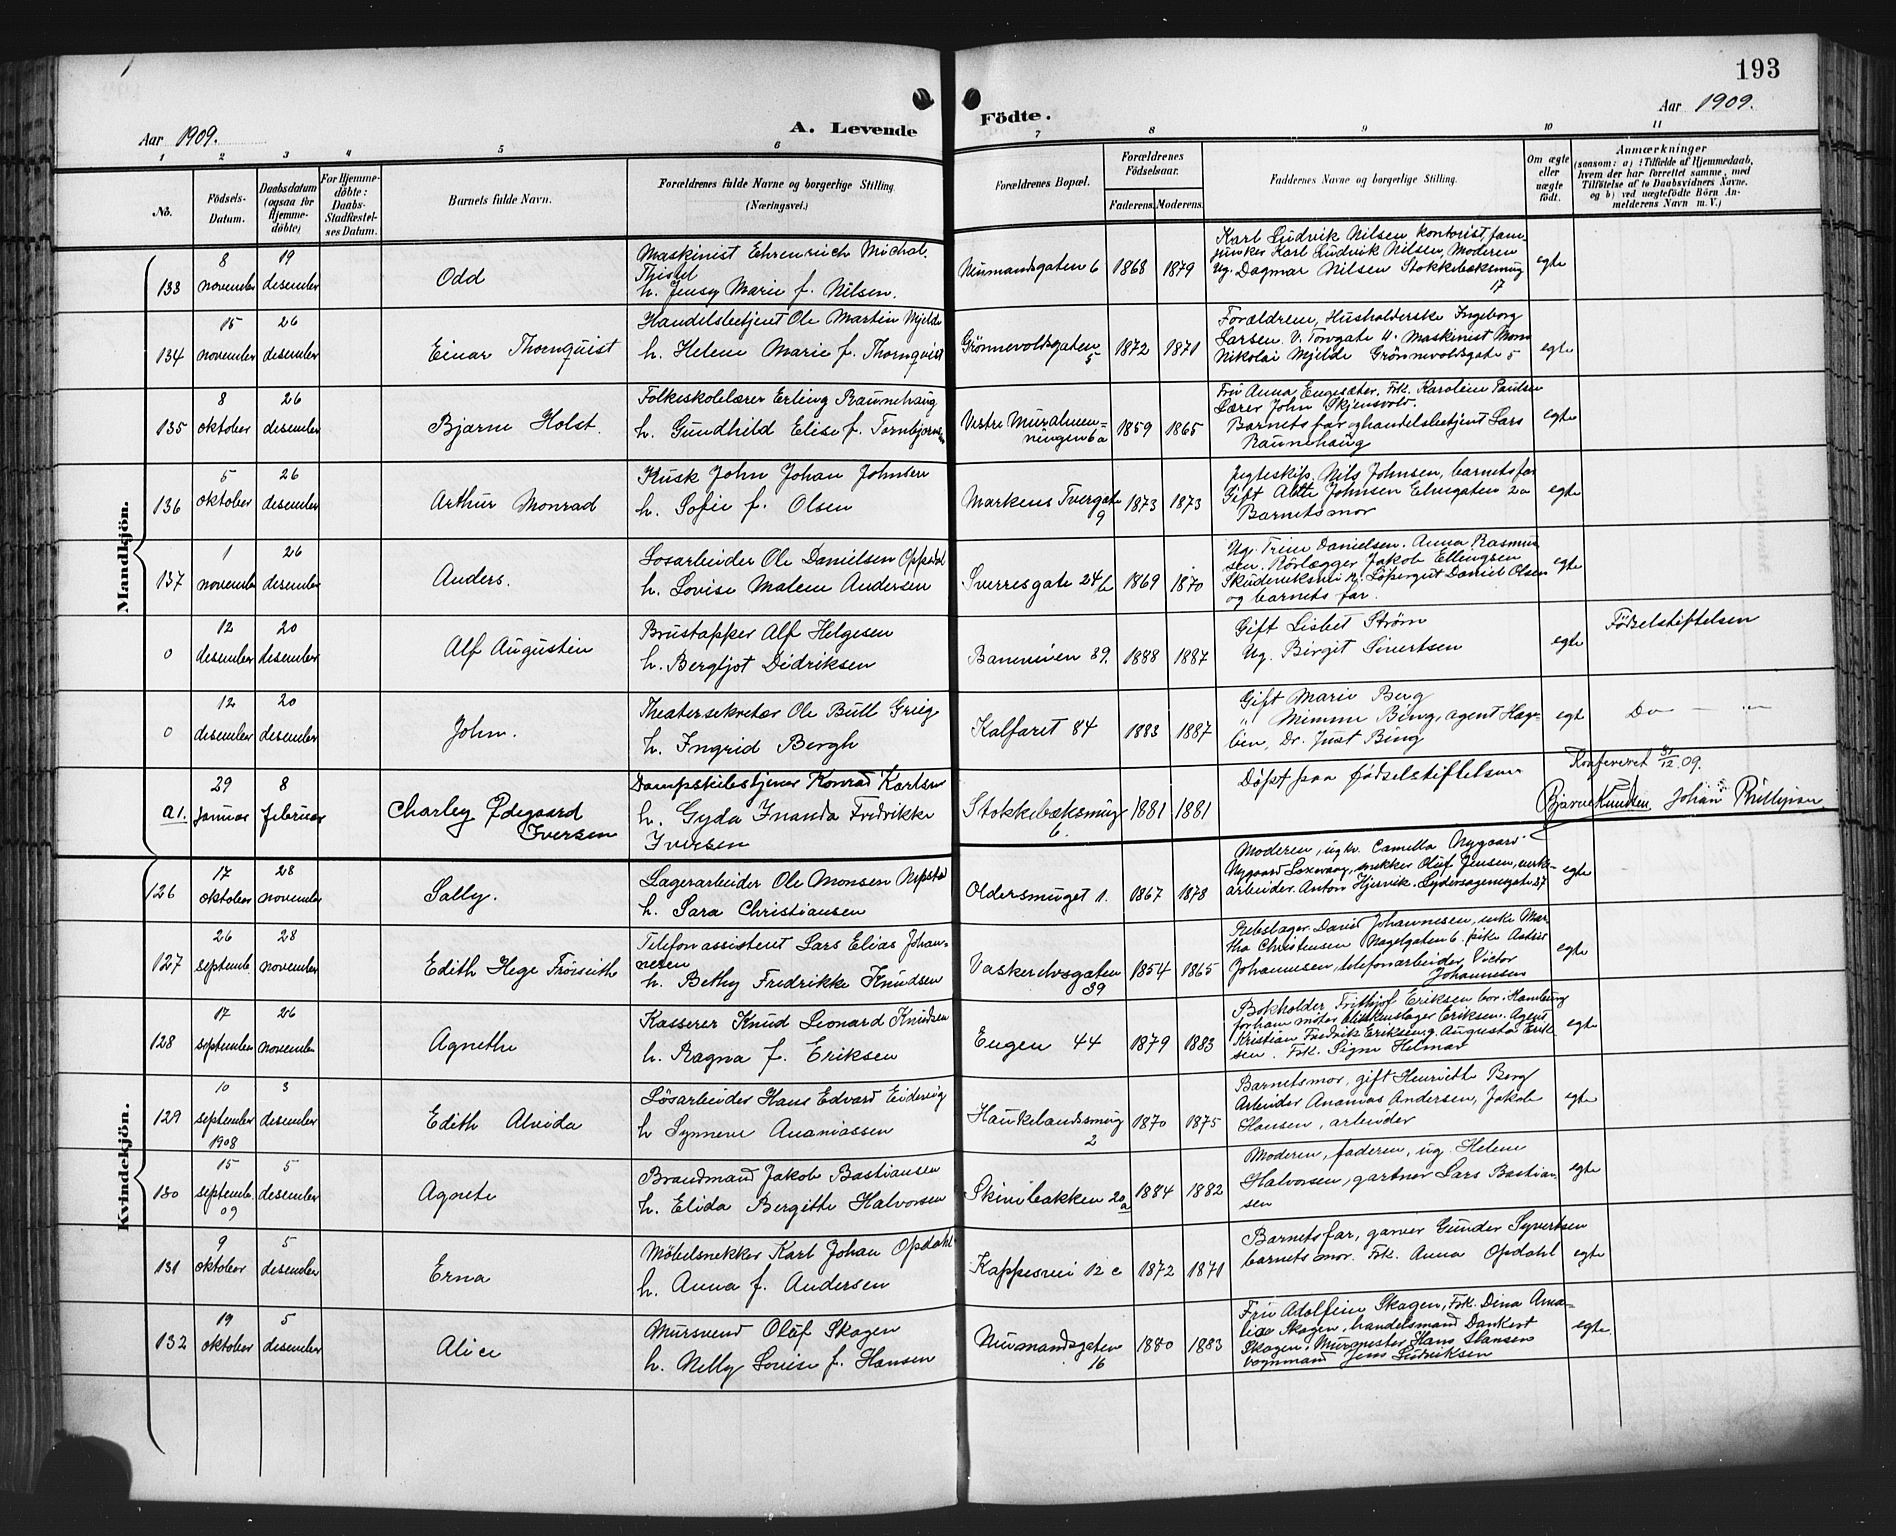 193
Aar 1909.
A. Levende
Födte.
Aar 1909.
1 2 3 4 5 6 7 8 9 10 11
No.
Födsels-Datum.
Daabsdatum (ogsaa for Hjemme-döbte)
For Hjemme-döbte: Daabs-Stadfæstel-ses Datum.
Barnets fulde Navn.
Forældrenes fulde Navne og borgerlige Stilling. (Næringsvei.)
Forældrenes Bopæl.
Forældrenes Födselsaar.
Faderens. Moderens.
Faddernes Navne og borgerlige Stilling.
Om ægte eller uægte födt.
Anmærkninger
(saasom: a) i Tilfælde af Hjemmedaab, hvem der har forrettet samme, med Tilföielse af to Daabsvidners Navne, og b) ved uægtefödte Börn An-melderens Navn m. V.)
Mandkjön.
133 8 november 19 desember Odd
Maskinist Ehrenreich Michal.
Thistel
h. Jensy Marie f. Nilsen.
Neumandsgaten 6 1868 1879
Karl Ludvik Nilsen kontorist, jom-
junker Karl Ludvik Nilsen, Moderen
Ug. Dagmar Nilsen Stokkebæksmug
17
egte
134 15 november 26 desember Einar Thornquist
Handelsbetjent Ole Martin Mjelde
h. Helene Marie f. Thornquist
Grönnevoldsgaten 5 1872 1871
Forældrene, Husholderske Ingeborg
Larsen V. Torvgate 11. Maskinist Mons
Nikolai Mjelde Grönnevoldsgate 5
egte
135 8 oktober 26 desember Bjarne Holst.
Folkeskolelærer Erling Raunehaug
h. Gundhild Elise f. Tornbjørnsen
Vestre Muralmen-
ningen 6a 1859 1865
Fru Anna Engesæter, Frk. Karoline Paulsen
Lærer John Skjensvold
Barnets far og handelsbetjent Lars
Raunehaug
egte
136 5 oktober 26 desember Arthur Monrad
Kusk John Johan Johnsen
h. Sofie f. Olsen
Markens Tvergate 9 1873 1873
Jegteskip. Nils Johnsen, barnets far
Gift Alette Johnsen Elvegaten 2a
Barnets mor
egte
137 1 november 26 desember Anders.
Losarbeider Ole Danielsen Oppedal
h. Lovise Malene Andersen
Sverresgate 24 b 1869 1870
Ug. Trine Danielsen. Anna Rasmus-
sen. Rörlægger Jakob Ellingsen
Löpergut Daniel Olsen
og barnets far.
egte
0 12 desember 20 desember Alf Augustin
Brustapper Alf Helgesen
h. Bergljot Didriksen
Baneveien 39. 1888 1887
Gift Lisbet Ström
Ug. Birgit Sivertsen
egte Födselstiftelsen
0 12 desember 20 desember John.
Theatersekretær Ole Bull Grieg
h. Ingrid Bergh
Kalfaret 84 1883 1887
Gift Marie Berg
" Mimmi Bing, agent Hag-
ben, Dr. Just Bing
egte Do — "
a1. 29 januar 8 februar Charley Ødegaard
Iversen
Dampskibstjener Konrad Karlsen
h. Gyda Inanda Fredrikke
Iversen
Stokkebæksmug 6. 1881 1881
Døpt paa fødselstiftelsen
Konfereret 31/12 09.
Bjarne Knudsen Johan Phillipsen
Kvindekjön.
126 17 oktober 28 november Sally.
Lagerarbeider Ole Monsen Repstad
h. Sara Christiansen
Oldersmuget 1. 1867 1878
Moderen, ugkr. Camilla Nygaard
Nygaard Laxevaag, snekker Oluf Jensen, verks-
arbeider Anton Hjervik. Lydersagensgate 37
egte
127 26 septemb. 28 november Edith Hege Fröiseth
Telefonassistent Lars Elias Johan-
nesen
h. Bethy Fredrikke Knudsen
Vaskerelvsgaten 39 1854 1865
Rebslager Daniel Johannesen, enke Mar-
tha Christensen Nagelgaten 6. pike Astrid
Johannesen, telefonarbeider Victor
Johannesen
egte
128 17 september 26 november Agnethe
Kasserer Knud Leonard Knudsen
h. Ragna f. Eriksen
Engen 44 1879 1883
Bokholder Frithjof Eriksen bor i Hamburg
for ham möter blikkenslager Eriksen. Agent
Kristian Fredrik Eriksen, g. Augusta Erik-
sen. Frk. Signe Helmar
egte
129 10 september 1908 3 desember Edith Alvida
Lösarbeider Hans Edvard Eidevig
h Synneve Ananiassen
Haukelandssmug 2 1870 1875
Barnetsmor, gift Henriette Berg
Arbeider Ananias Andersen, Jakob
Hansen, arbeider
egte
130 15 septemb. 09 5 desember Agnete
Brandmand Jakob Bastiansen
h. Elida Bergitte Halvorsen
Skivebakken 20 a 1884 1882
Moderen, faderen, ug. Helene
Halvorsen, gartner Lars Bastian-
sen
egte
131 9 oktober 5 desember Erna
Möbelsnekker Karl Johan Opdahl
h. Anna f. Andersen
Kappesvei 12 c 1872 1871
Barnets far, garver Gunder Syvertsen
barnets mor. Frk. Anna Opdahl
egte
132 19 oktober 5 desember Alice
Mursvend Oluf Skagen
h. Nelly Lovise f. Hansen
Neumandsgaten 16 1880 1883
Fru Adolfine Skagen, Frk. Dina Ama-
lie Skagen, handelsmand Dankert
Skagen, Murmester Hans Hansen
vognmand Jens Ludriksen
egte.